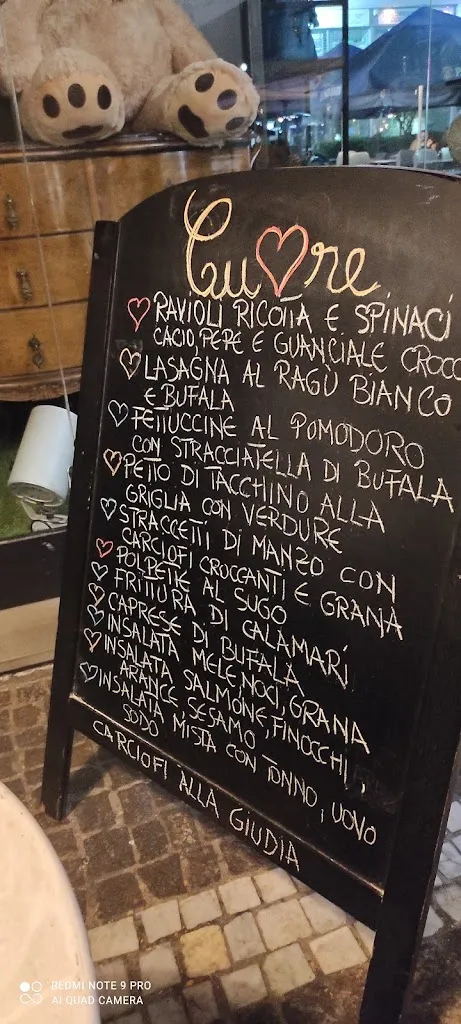 Cuore
RAVIOLI RICOTTA E SPINACI
CACIO, PEPE E GUANCIALE CROCC
LASAGNA AL RAGÙ BIANCO
E BUFALA
FETTUCCINE AL POMODORO
CON STRACCIATELLA DI BUFALA
PETTO DI TACCHINO ALLA
GRIGLIA CON VERDURE
STRACCETTI DI MANZO CON
CARCIOFI CROCCANTI E GRANA
POLPETTE AL SUGO
FRITTURA DI CALAMARI
CAPRESE DI BUFALA
INSALATA MELE, NOCI, GRANA
INSALATA SALMONE, FINOCCHI,
ARANCE, SESAMO
INSALATA MISTA CON TONNO, UOVO
SODO
CARCIOFI ALLA GIUDIA
REDMI NOTE 9 PRO
AI QUAD CAMERA